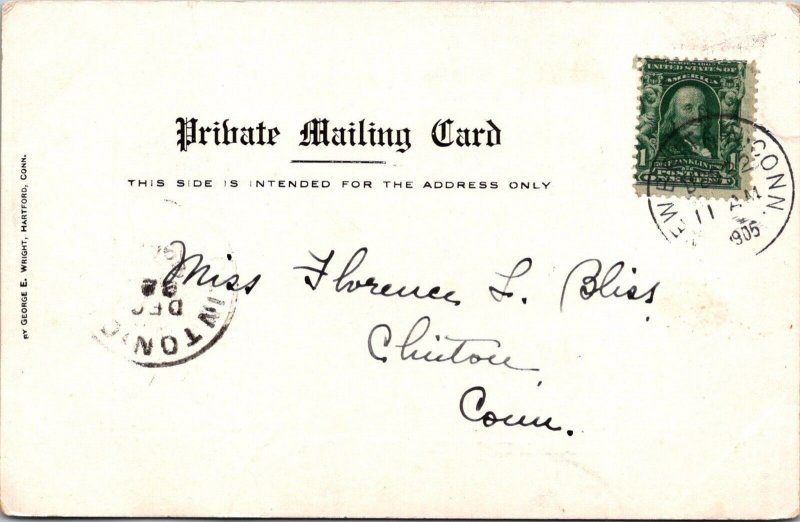 Private Mailing Card
THIS SIDE IS INTENDED FOR THE ADDRESS ONLY
BY GEORGE E. WRIGHT, HARTFORD, CONN.
UNITED STATES OF
AMERICA
1 FRANKLIN 1
CONN.
11 AM
1905
Miss Florence L. Bliss
Clinton
Conn.
CLINTON
DEC